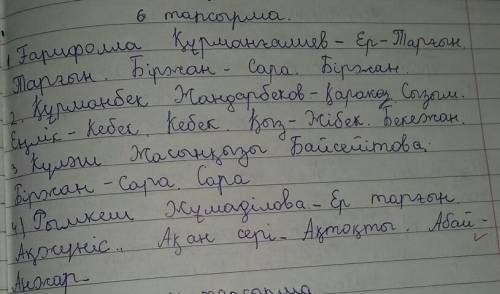 6 тапсырма.
1 Ғарифолла Құрманғалиев - Ер-Тарғын.
Тарғын. Біржан - Сара. Біржан.
2. Құрманбек Жандарбеков - Қаракөз Сызым.
Еңлік - Кебек. Кебек. Қыз-Жібек. Бекежан.
3 Күләш Жасынқызы Байсейітова.
Біржан - Сара. Сара
4) Рымкеш Жұмаділова - Ер тарғын
Ақжүніс. Ақан сері - Ақтоқты. Абай -
Анжар.